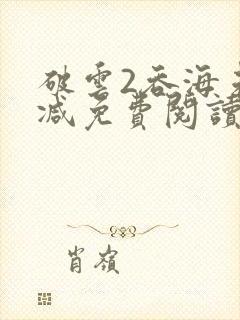 破雲2吞海
減免費閱讀
肖嶺